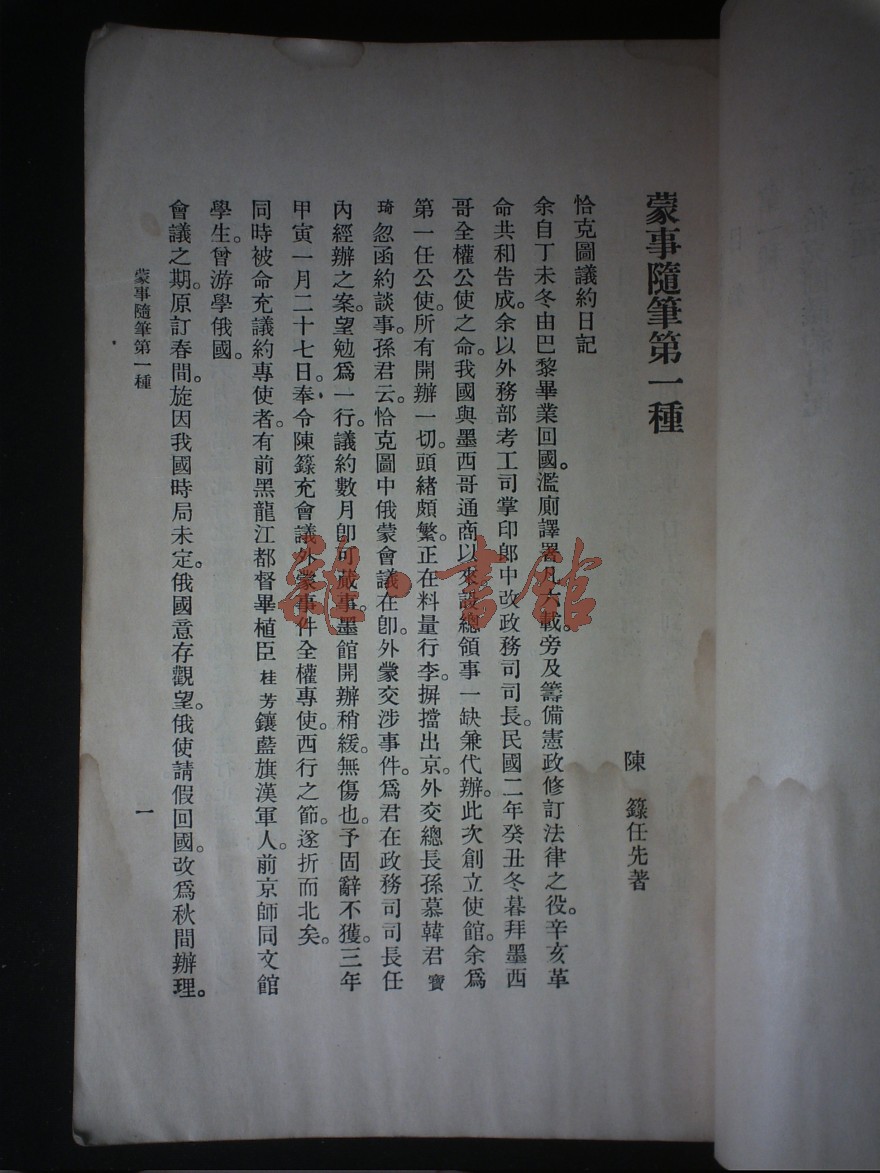 蒙事隨筆第一種
陳 籙任先著
恰克圖議約日記
余自丁未冬由巴黎畢業回國。濫廁譯署凡六載。旁及籌備憲政修訂法律之役。辛亥革
命共和告成。余以外務部考工司掌印郎中改政務司司長。民國二年癸丑冬暮拜墨西
哥全權公使之命。我國與墨西哥通商以來設總領事一缺兼代辦。此次創立使館。余爲
第一任公使。所有開辦一切。頭緒頗繁。正在料量行李。摒擋出京。外交總長孫慕韓君寶
琦忽函約談事。孫君云。恰克圖中俄蒙會議在卽。外蒙交涉事件。爲君在政務司司長任
內經辦之案。望勉爲一行。議約數月卽可蕆事。墨館開辦稍緩。無傷也。予固辭不獲。三年
甲寅一月二十七日。奉令陳籙充會議外蒙事件全權專使。西行之節。遂折而北矣。
同時被命充議約專使者。有前黑龍江都督畢植臣桂芳鑲藍旗漢軍人。前京師同文館
學生。曾游學俄國。
會議之期。原訂春間。旋因我國時局未定。俄國意存觀望。俄使請假回國。改爲秋間辦理。
蒙事隨筆第一種
一
雜·書館